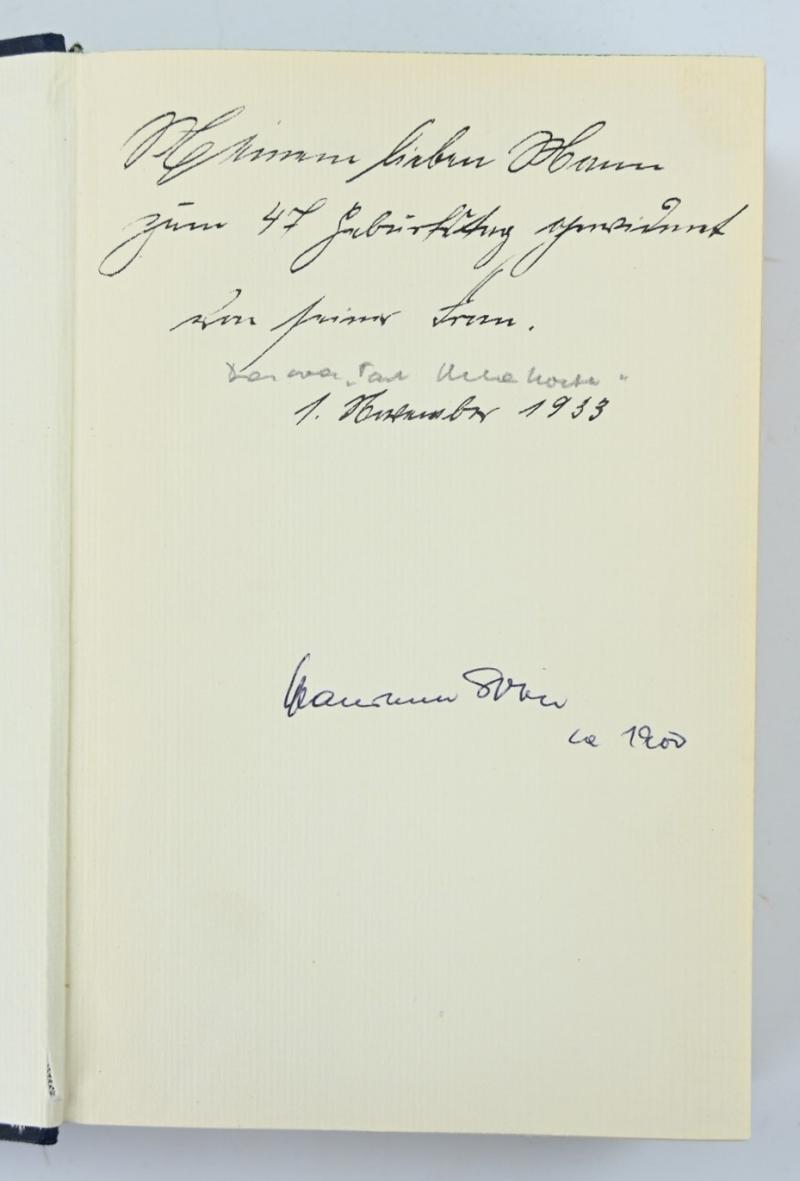 Meinem lieben Mann
zum 47 Geburtstag gewidmet
von seiner Frau.
Das war
1. November 1933
ca 1900